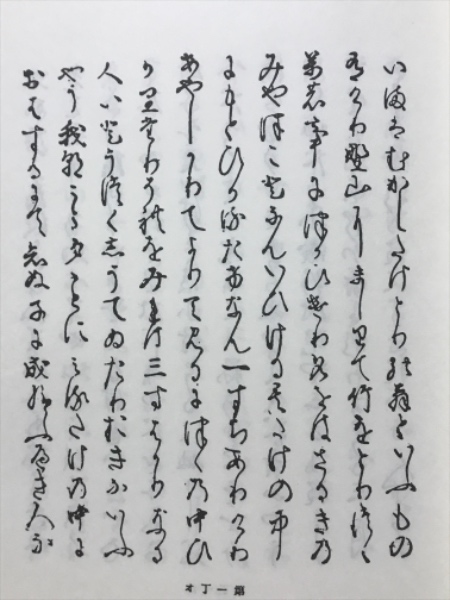 いまはむかしたけとりの翁といふもの
有けり野山にましりて竹をとりつゝ
万の事につかひけり名をはさるきの
みやつことなんいひける其たけの中
にもとひかる竹なん一すちありけり
あやしかりてよりて見るにつゝの中ひ
かりたりそれをみれは三寸はかりなる
人いとうつくしうてゐたりおきないふ
やう我朝こと夕ことにみるたけの中に
おはするにてしりぬ子に成給へき人な
第一丁オ